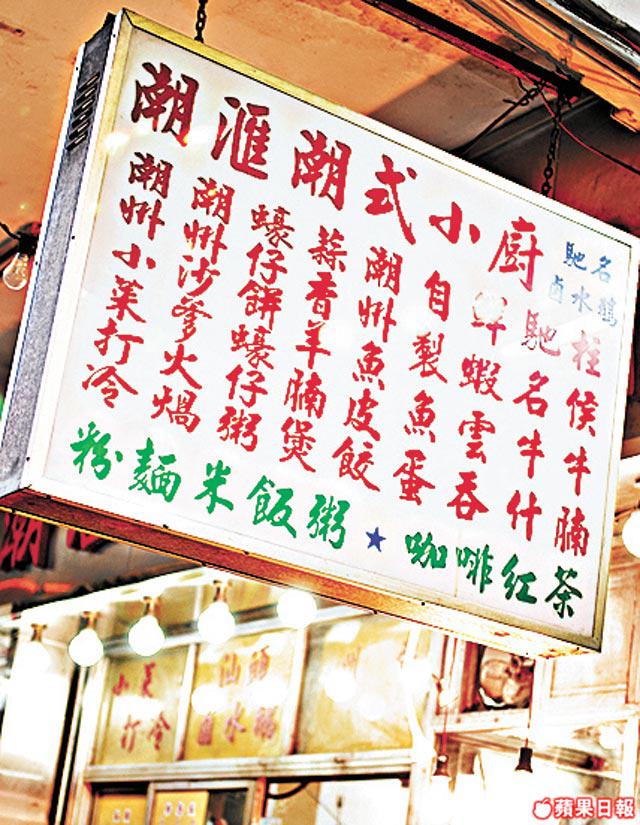 潮滙潮式小廚
馳名
鹵水鵝
柱侯牛腩
馳名牛什
鮮蝦雲吞
自製魚蛋
潮州魚皮餃
蒜香羊腩煲
蠔仔餅蠔仔粥
潮州沙爹火煱
潮州小菜打冷
粉麵米飯粥★咖啡紅茶
潮
小菜
打冷
汕頭
鹵水鵝
蘋果日報